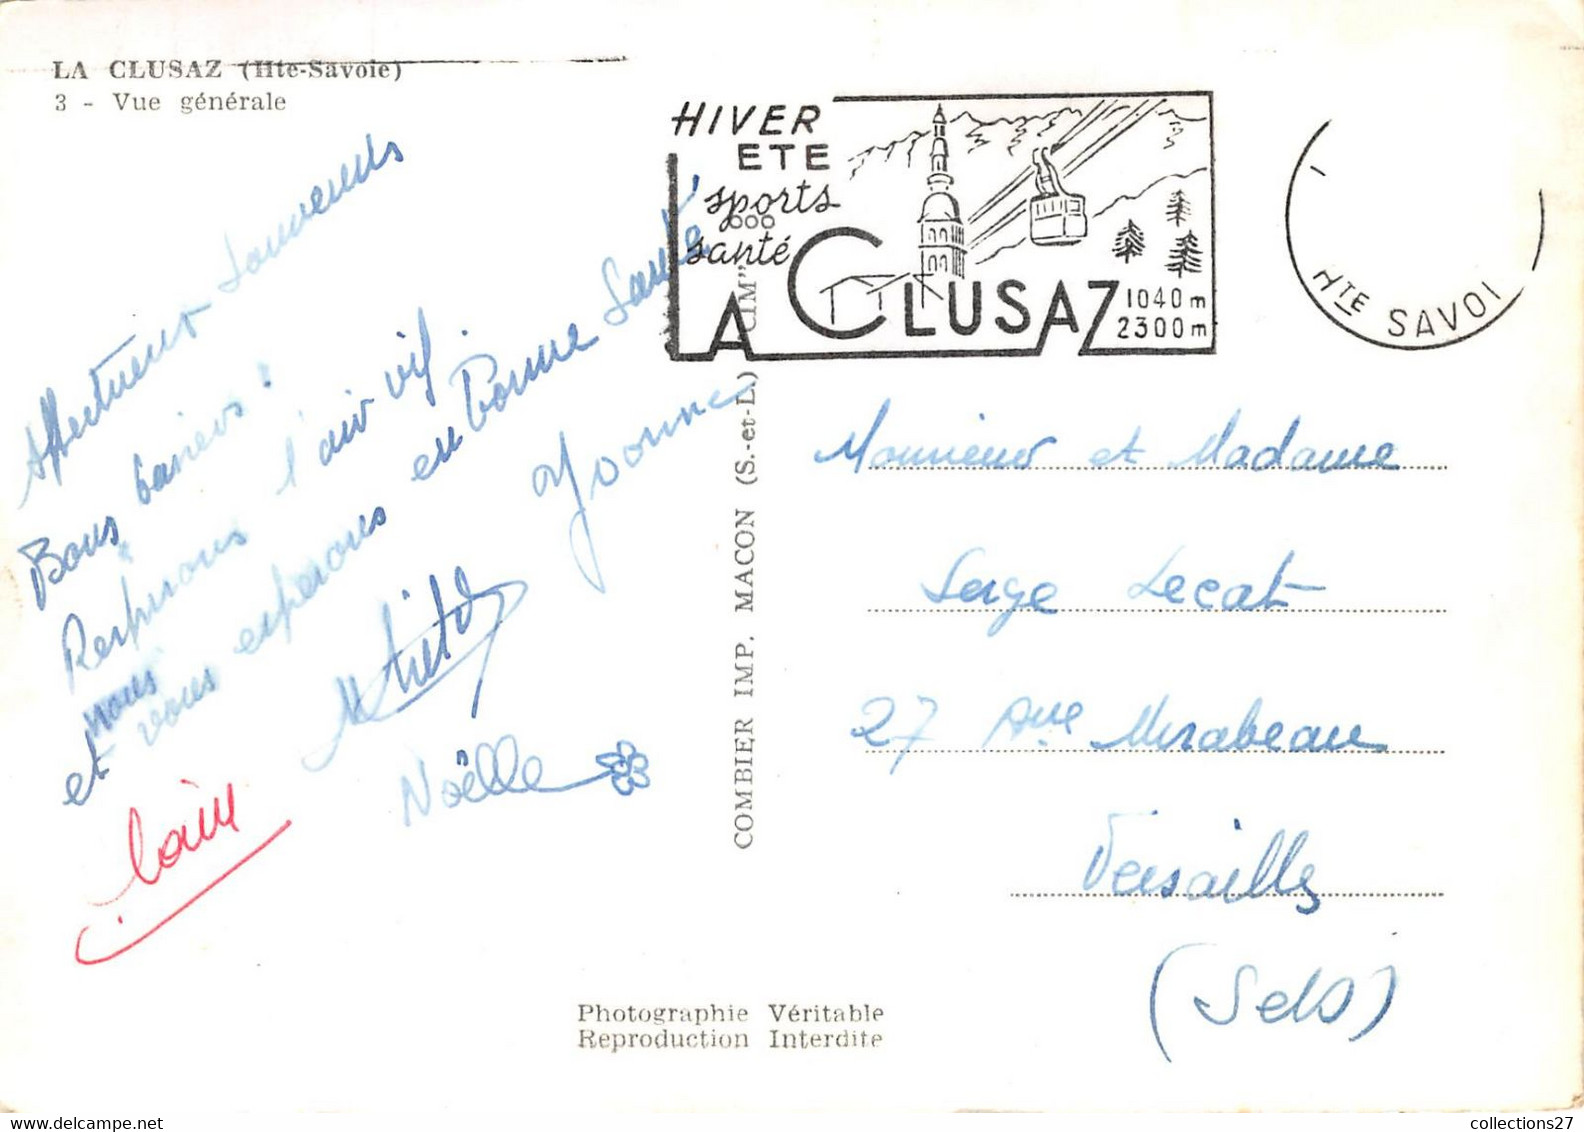 LA CLUSAZ (Hte-Savoie)
3 - Vue générale
HIVER
ETE
sports
santé
LA CLUSAZ
1040 m
2300 m
HTE SAVOI
Affectueux Souvenirs
Bons baisers !
Respirons l'air vif
nous
et vous espérons en bonne Santé
Yvonne
Noëlle
COMBIER IMP. MACON (S.-et-L.) CIM"
Monsieur et Madame
Serge Lecat
27 Ave Mirabeau
Versailles
(SetO)
Photographie Véritable
Reproduction Interdite
collections27